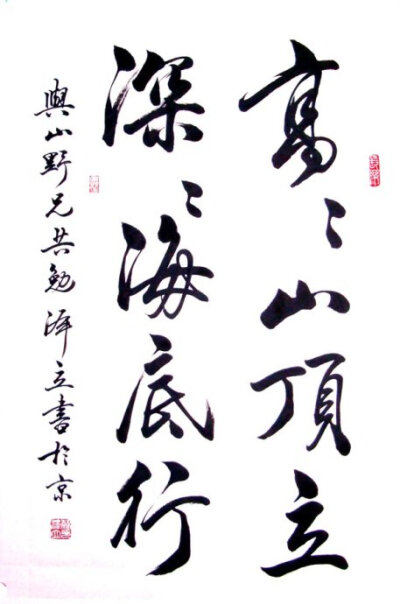 高〻山頂立
深〻海底行
與山野兄共勉澤立書於京